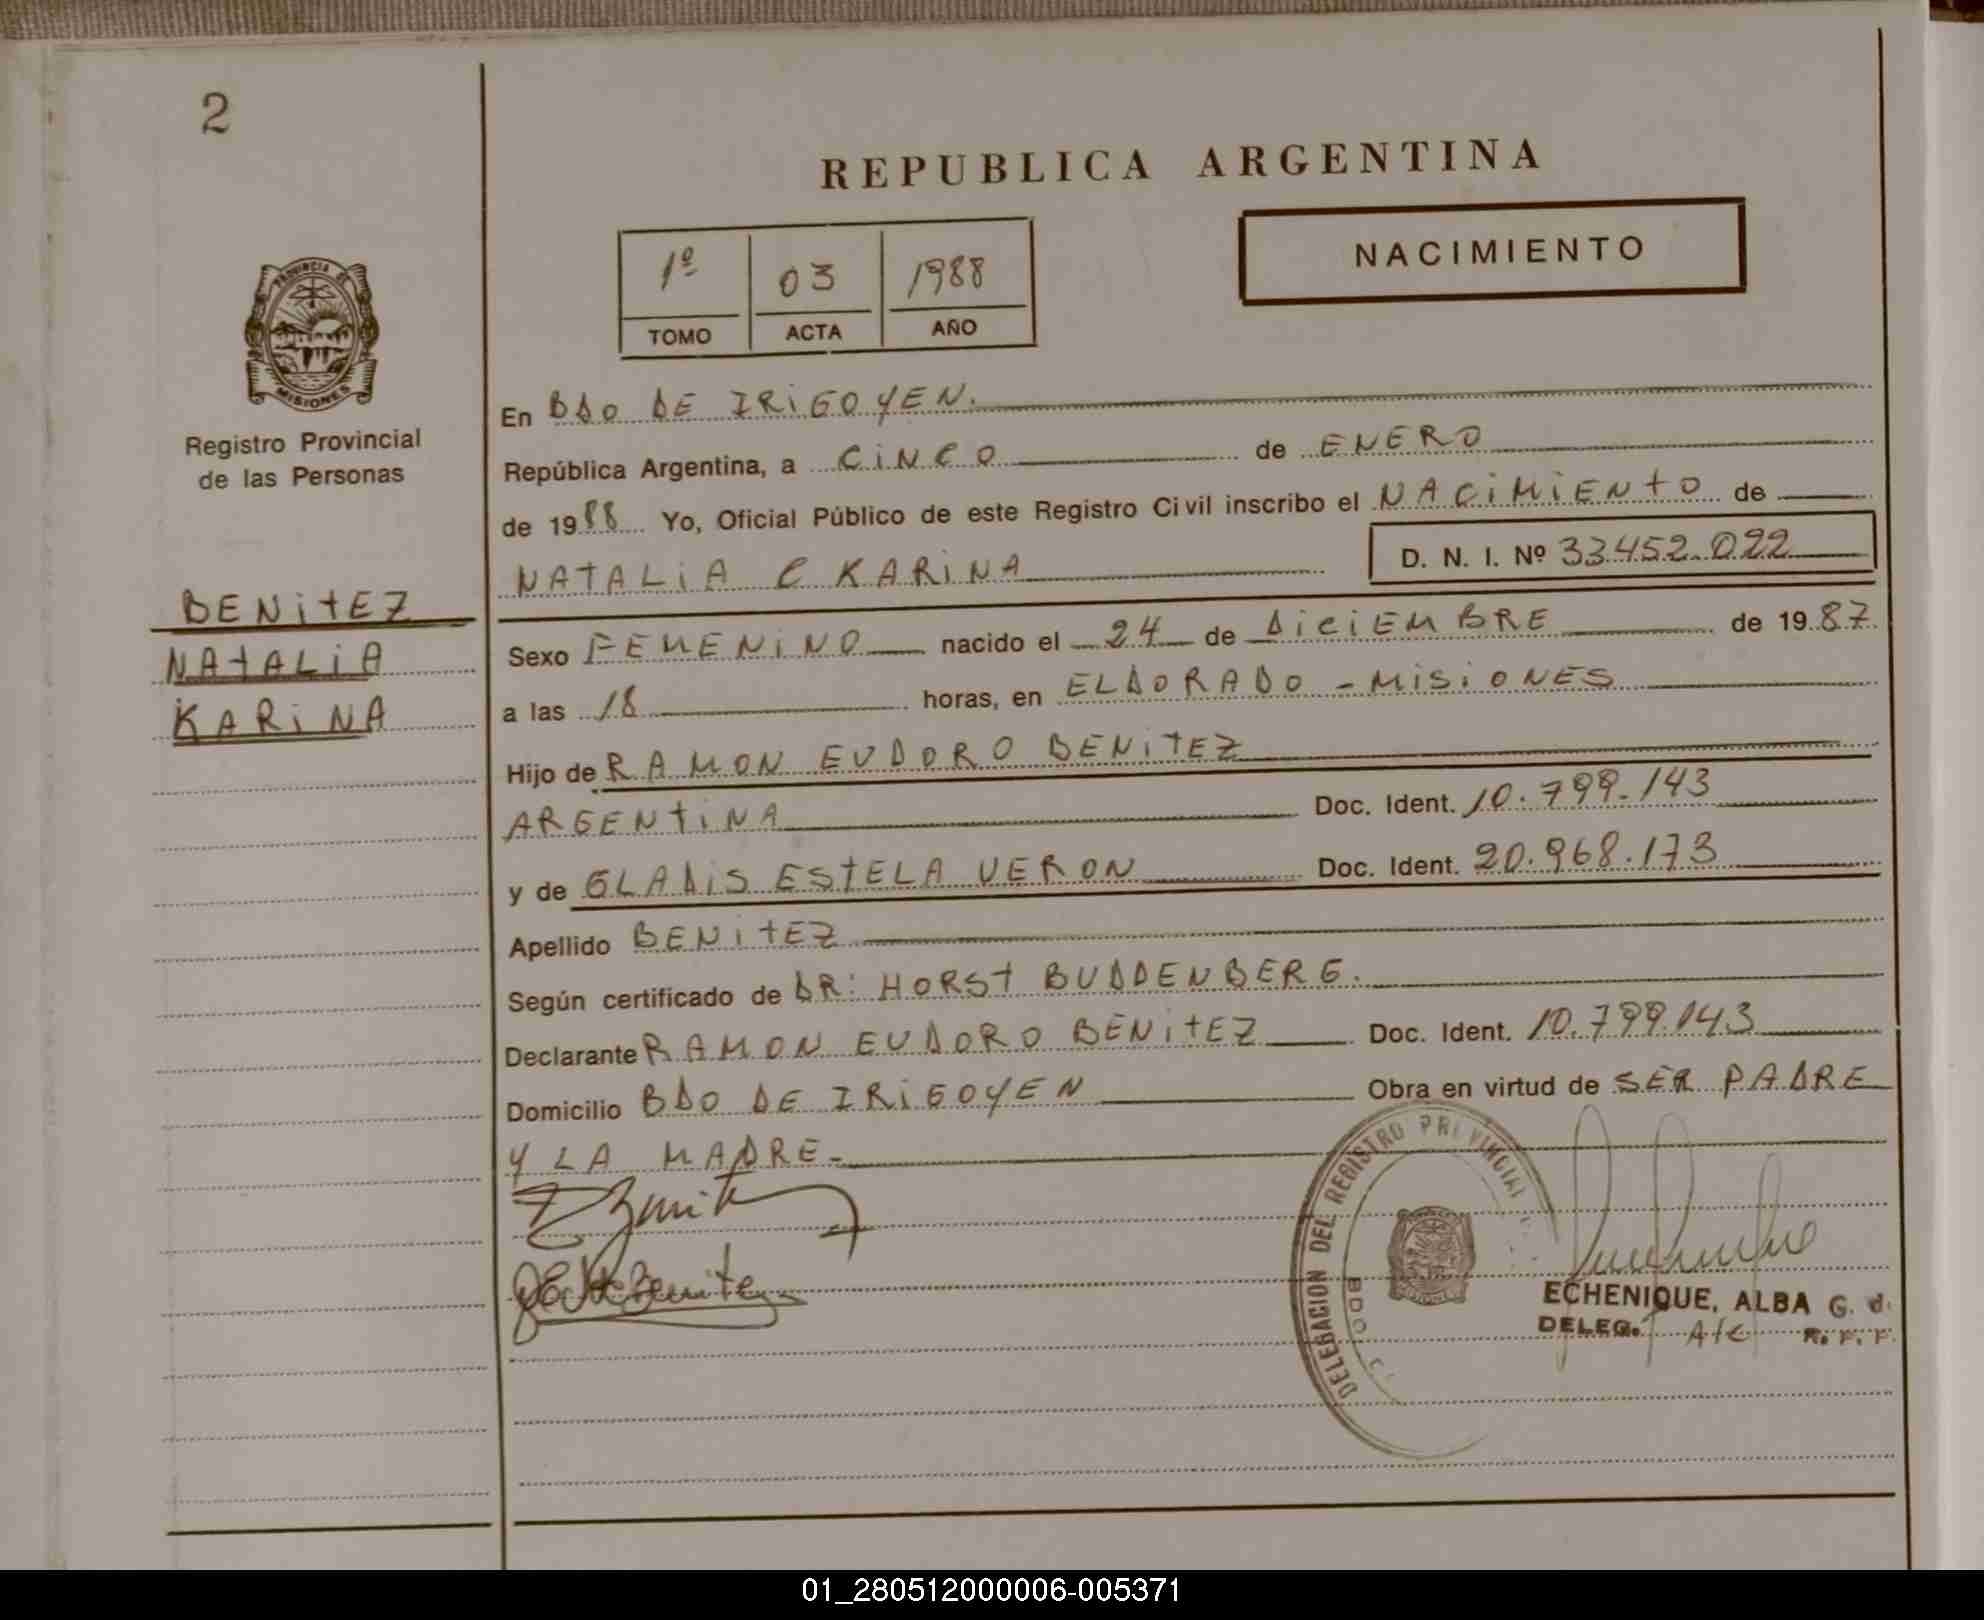 2
REPUBLICA ARGENTINA
1º 03 1988
TOMO ACTA AÑO
NACIMIENTO
PROVINCIA DE
MISIONES
Registro Provincial
de las Personas
BENITEZ
NATALIA
KARINA
En BDO DE IRIGOYEN.
República Argentina, a CINCO de ENERO
de 1988 Yo, Oficial Público de este Registro Civil inscribo el NACIMIENTO de
NATALIA KARINA D. N. I. Nº 33.452.022
Sexo FEMENINO nacido el 24 de DICIEMBRE de 1987
a las 18 horas, en ELDORADO - MISIONES
Hijo de RAMON EUDORO BENITEZ
ARGENTINA Doc. Ident. 10.799.143
y de GLADIS ESTELA VERON Doc. Ident. 20.968.173
Apellido BENITEZ
Según certificado de DR: HORST BUDDENBERG.
Declarante RAMON EUDORO BENITEZ Doc. Ident. 10.799.143
Domicilio BDO DE IRIGOYEN Obra en virtud de SER PADRE
Y LA MADRE.
DELEGACION DEL REGISTRO PROVINCIAL
BDO
ECHENIQUE, ALBA G. d.
DELEG. A/C R. P. P.
01_280512000006-005371